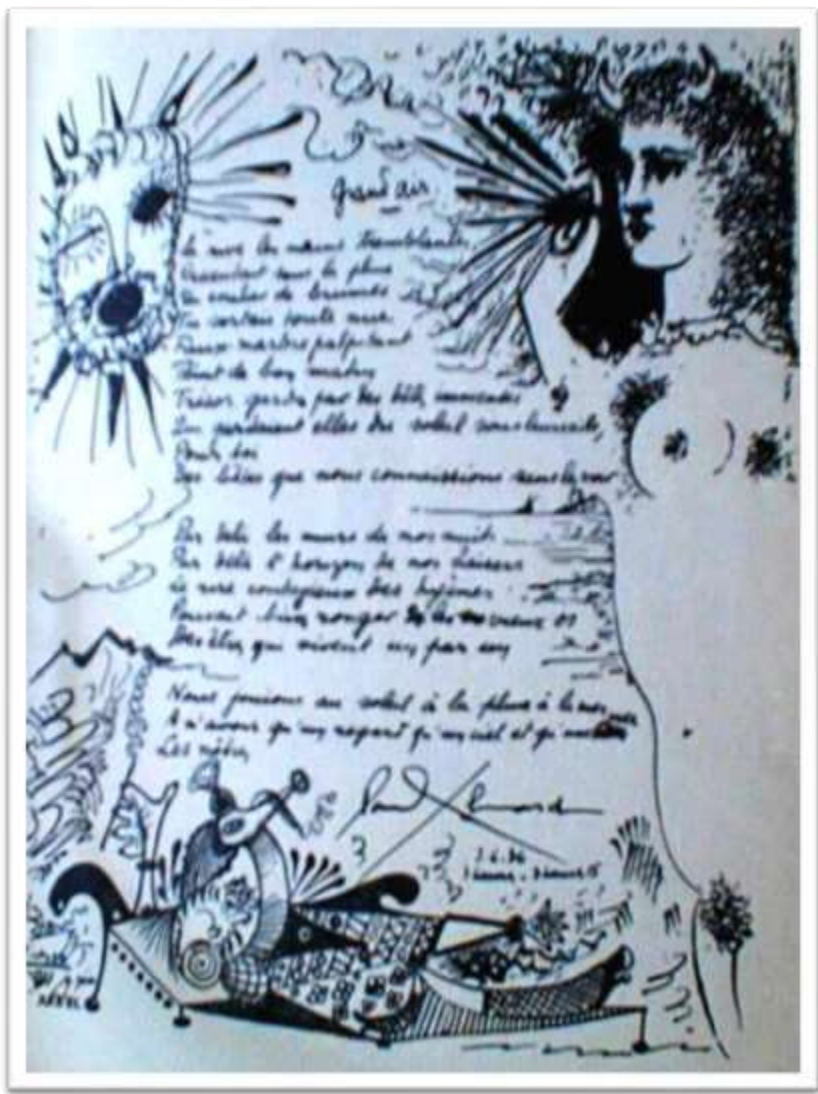 grand air
La rive les mains tremblantes
Descendait sous la pluie
Un escalier de brumes
Tu sortais toute nue
Faux marbre palpitant
Teint de bon matin
Trésor gardé par des bêtes immenses
Qui gardaient elles du soleil sous leurs ailes
Pour toi
Des bêtes que nous connaissions sans les voir
Par delà les murs de nos nuits
Par delà l'horizon de nos baisers
Le rire contagieux des hyènes
Pouvait bien ronger les vieux os
Des êtres qui vivent un par un
Nous jouions au soleil à la pluie à la mer
A n'avoir qu'un regard qu'un ciel et qu'une mer
Les nôtres
Paul Eluard